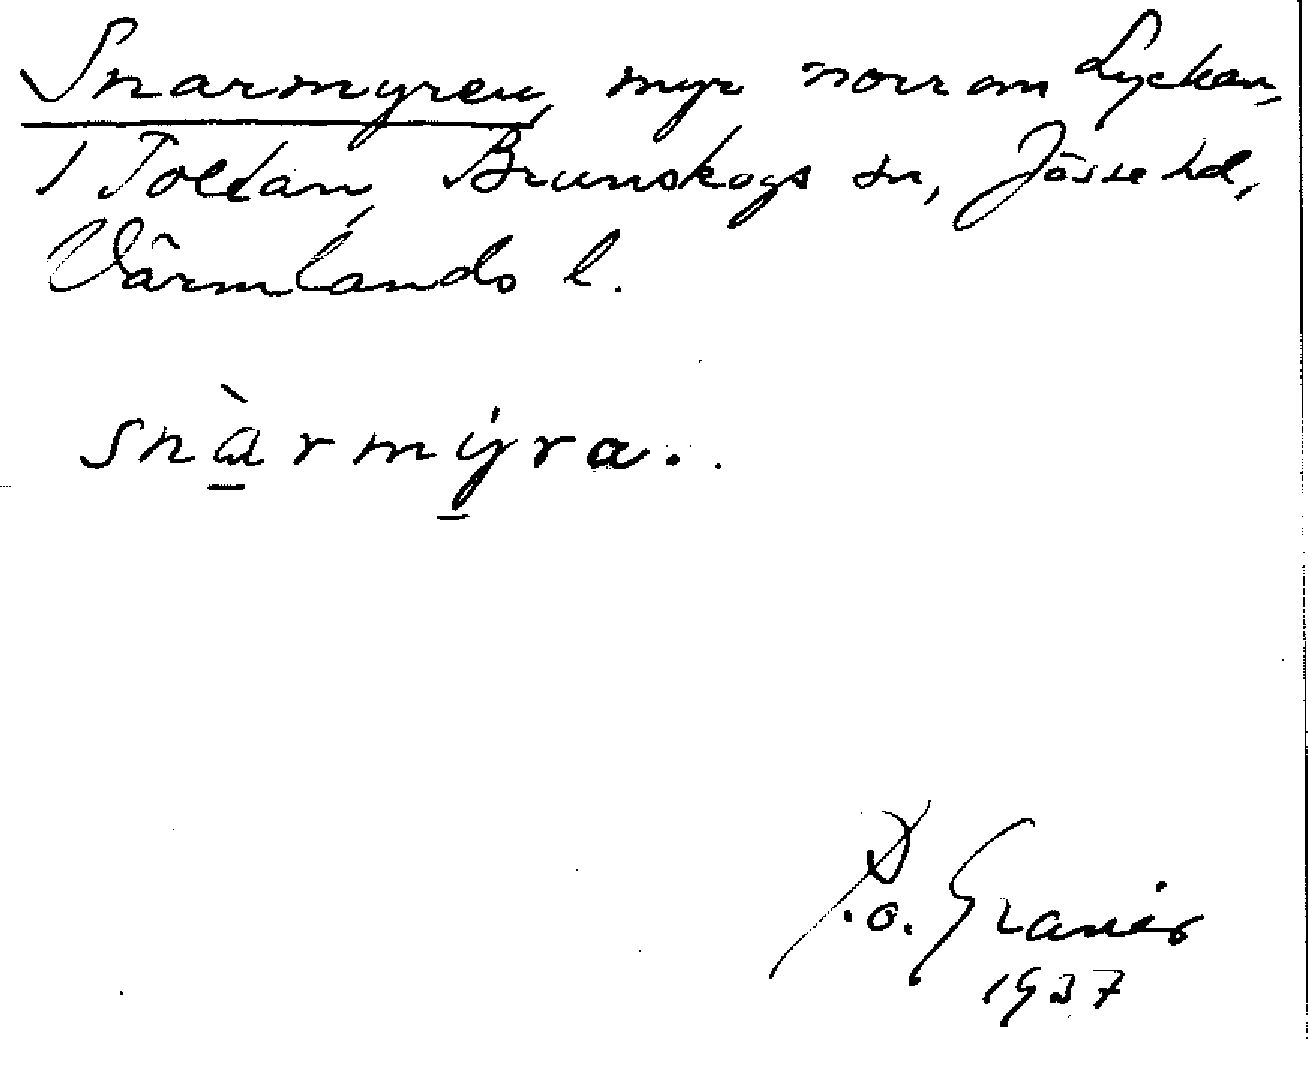 Snarmyren, myr norr om Lyckan,
i Toltan, Brunskogs sn, Jösse hd,
Värmlands l.
snàrmýra.
P.o. Granér
1937